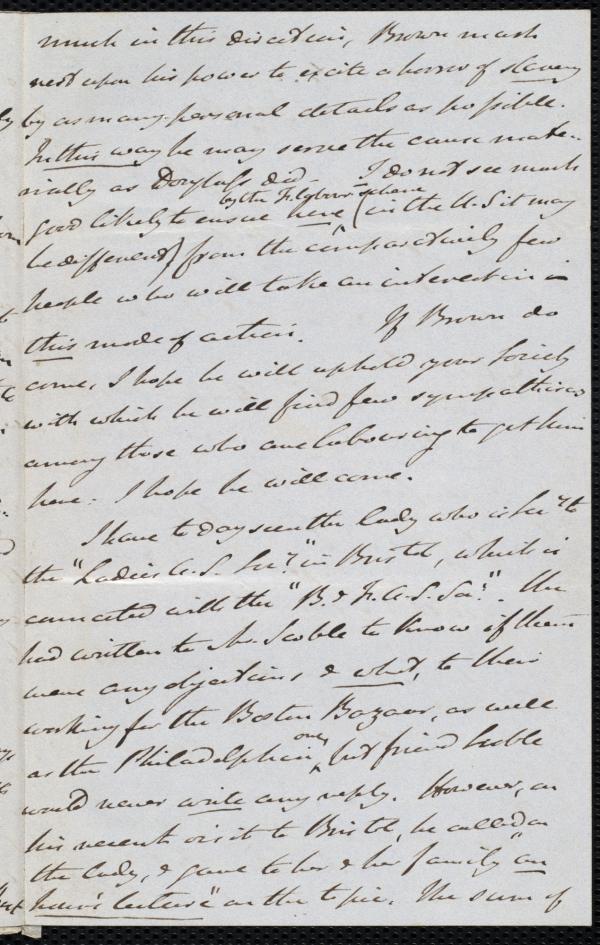 much in this direction, Brown must
rest upon his power to excite a horror of slavery
by as many personal details as possible.
In this way he may serve the cause mate-
rially as Douglass did. I do not see much
good likely to ensue here by the F. Labour scheme (in the U.S. it may
be different) from the comparatively few
people who will take an interest in in
this mode of action. If Brown do
come, I hope he will uphold your Society
with which he will find few sympathisers
among those who are labouring to get him
here. I hope he will come.
I have to day seen the lady who is Secy to
the "Ladies A. S. Socy" in Bristol, which is
connected with the "B. & F. A. S. Socy". She
had written to Mr. Scoble to know if there
were any objections & what, to their
working for the Boston Bazaar, as well
as the Philadelphian one, but friend Scoble
would never write any reply. However, on
his recent visit to Bristol, he called on
the lady, & gave to her & her family "an
hour's lecture" on the topic. The sum of